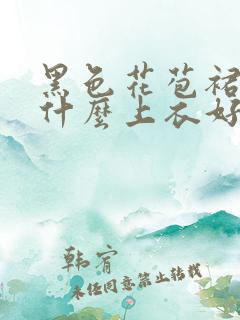 黑色花苞裙
什麼上衣好
韩宥
未经同意禁止转载